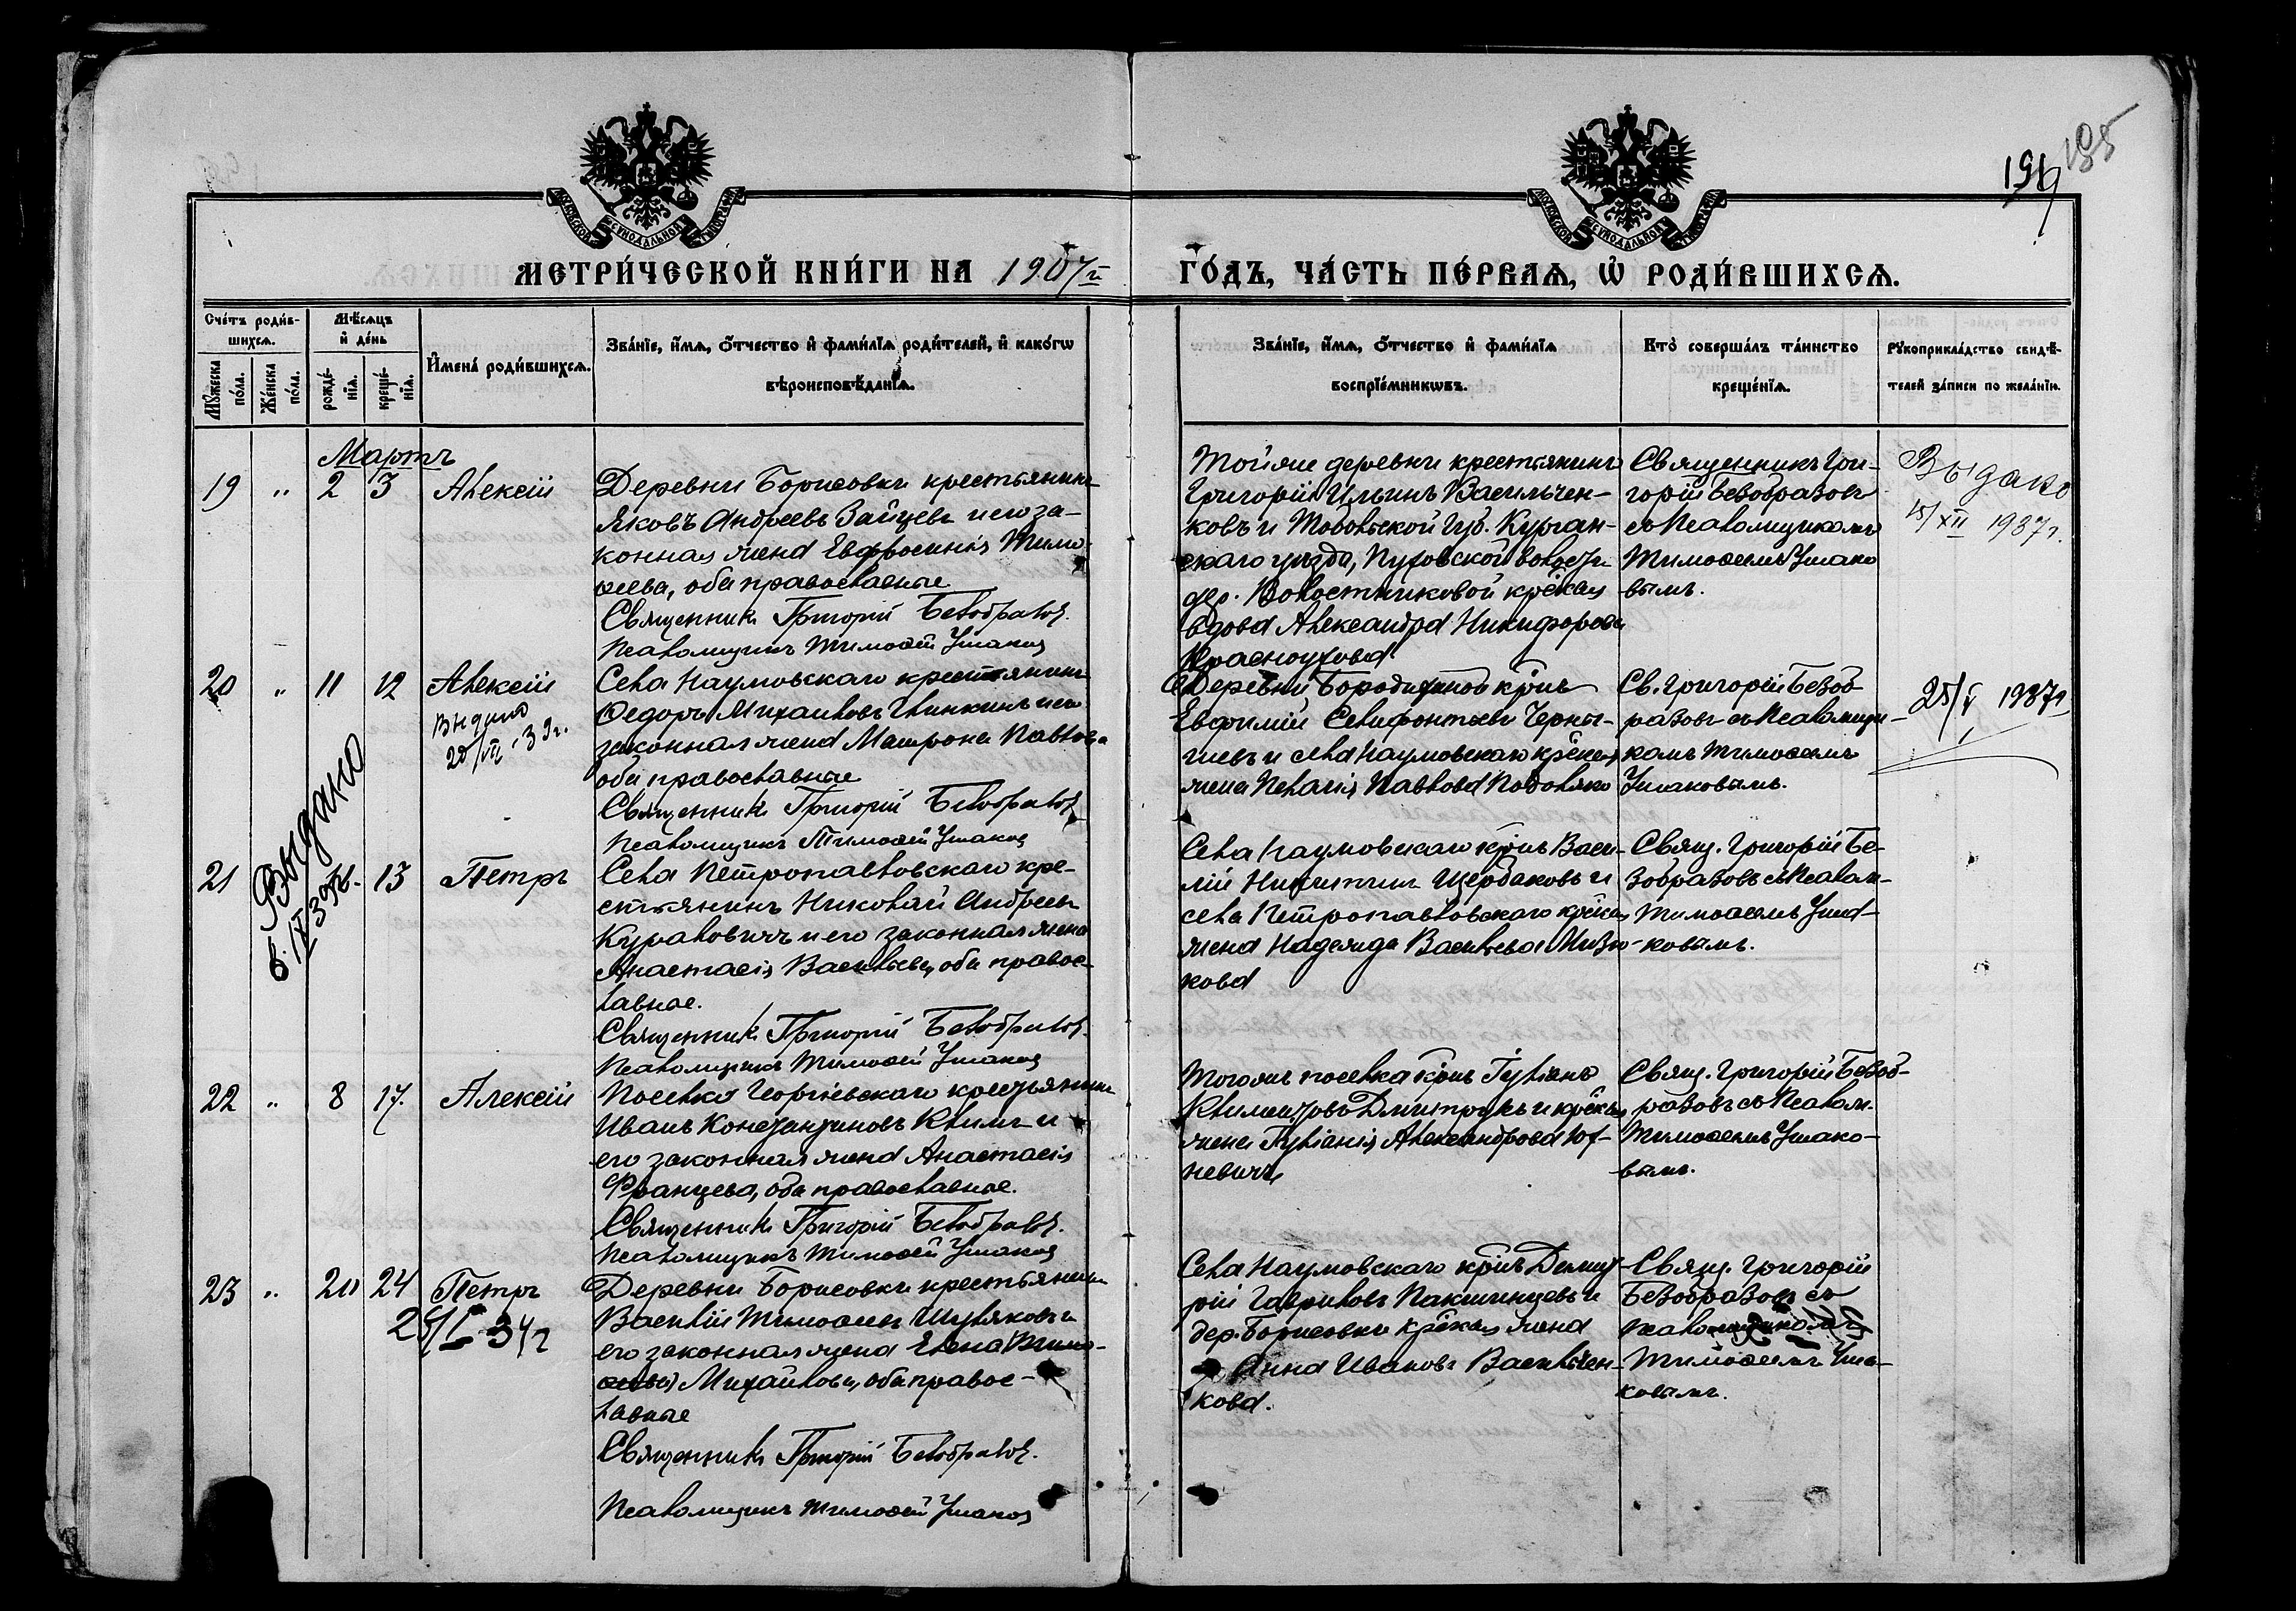 194 195
МОСКОВСКОЙ СѴНОДАЛЬНОЙ ТИПОГРАФІИ
МОСКОВСКОЙ СѴНОДАЛЬНОЙ ТИПОГРАФІИ
МЕТРИ́ЧЕСКОЙ КНИ́ГИ НА 1907й ГО́ДЪ, ЧА́СТЬ ПЕ́РВАѦ, Ѡ҆ РОДИ́ВШИХСѦ.
Сче́тъ роди́в-
шихсѧ.
Мꙋ́жеска по́ла.
Же́нска по́ла.
Мѣ́сѧцъ
и҆ де́нь
рожде́-
нїѧ.
креще́-
нїѧ.
И҆мена̀ роди́вшихсѧ.
Зва́нїе, и҆́мѧ, ѻ҆́тчество и҆ фами́лїѧ роди́телей, и҆ како́гѡ
вѣроисповѣ́данїѧ.
Зва́нїе, и҆́мѧ, ѻ҆́тчество и҆ фами́лїѧ
воспрїе́мникѡвъ.
Кто̀ соверша́лъ та́инство
креще́нїѧ.
Рꙋкоприкла́дство свидѣ́-
телей за́писи по жела́нїю.
Мартъ
19 " 2 3 Алексій
Деревни Борисовки крестьянинъ
Яковъ Андреевъ Зайцевъ и его за-
конная жена Евфросинія Тимо-
ѳеева, оба православные
Священникъ Григорій Безобразовъ.
Псаломщикъ Тимоѳей Ушаковъ
Тойже деревни крестьянинъ
Григорій Ильинъ Васильчен-
ковъ и Тобольской губ. Курган-
скаго уѣзда, волости
дер. кр̃ская
вдова Александра Никифорова
Красноухова
Священникъ Гри-
горій Безобразовъ
съ Псаломщикомъ
Тимоѳеемъ Ушако
вымъ.
Выдано
15/XII 1937г.
20 " 11 12 Алексій
Выдано
20/VII-39г.
Села Наумовскаго крестьянинъ
Ѳедоръ Михаиловъ и его
законная жена Матрона Павлова
оба православные
Священникъ Григорій Безобразовъ
Псаломщикъ Тимоѳей Ушаковъ
Деревни кр̃нъ
Евфимій
и села Наумовскаго кр̃ская
жена Пелагія Павлова
Св. Григорій Безоб
разовъ съ Псаломщи-
комъ Тимоѳеемъ
Ушаковымъ.
25/V 1937г.
21 13 Петръ
Выдано
Села Петропавловскаго кре-
стьянинъ Николай Андреевъ
Куралович и его законная жена
Анастасія Васильева, оба правос-
лавные.
Священникъ Григорій Безобразовъ.
Псаломщикъ Тимоѳей Ушаковъ
Села Наумовскаго кр̃нъ Васи-
лій Никитинъ Щербаковъ и
села Петропавловскаго кр̃ская
жена Надежда Васильева Мизю-
кова
Свящ. Григорій Бе-
зобразовъ съ Псалом-
Тимоѳеемъ Уша-
ковымъ.
22 " 8 17. Алексій
Поселка Георгіевскаго крестьянинъ
Иванъ Константиновъ Климъ и
его законная жена Анастасія
Францева, оба православные.
Священникъ Григорій Безобразовъ.
Псаломщикъ Тимоѳей Ушаковъ
Тогожъ поселка кр̃нъ Іуліанъ
и кр̃ская
жена Іуліанія Александрова Юх-
невичъ
Свящ. Григорій Безоб-
разовъ съ Псалом.
Тимоѳеемъ Ушако-
вымъ.
23 " 20 24 Петръ
Деревни Борисовки крестьянинъ
Василій Тимоѳеевъ Шуляковъ и
его законная жена Елена
Михайлова, оба правос-
лавные
Священникъ Григорій Безобразовъ.
Псаломщикъ Тимоѳей Ушаковъ
Села Наумовскаго кр̃нъ Димит-
рій Гавриловъ Пакшинцевъ и
дер. Борисовки кр̃ская жена
Анна Иванова Васильчен-
кова.
Свящ. Григорій
Безобразовъ съ
псаломщикомъ
Тимоѳеемъ Уша-
ковымъ.